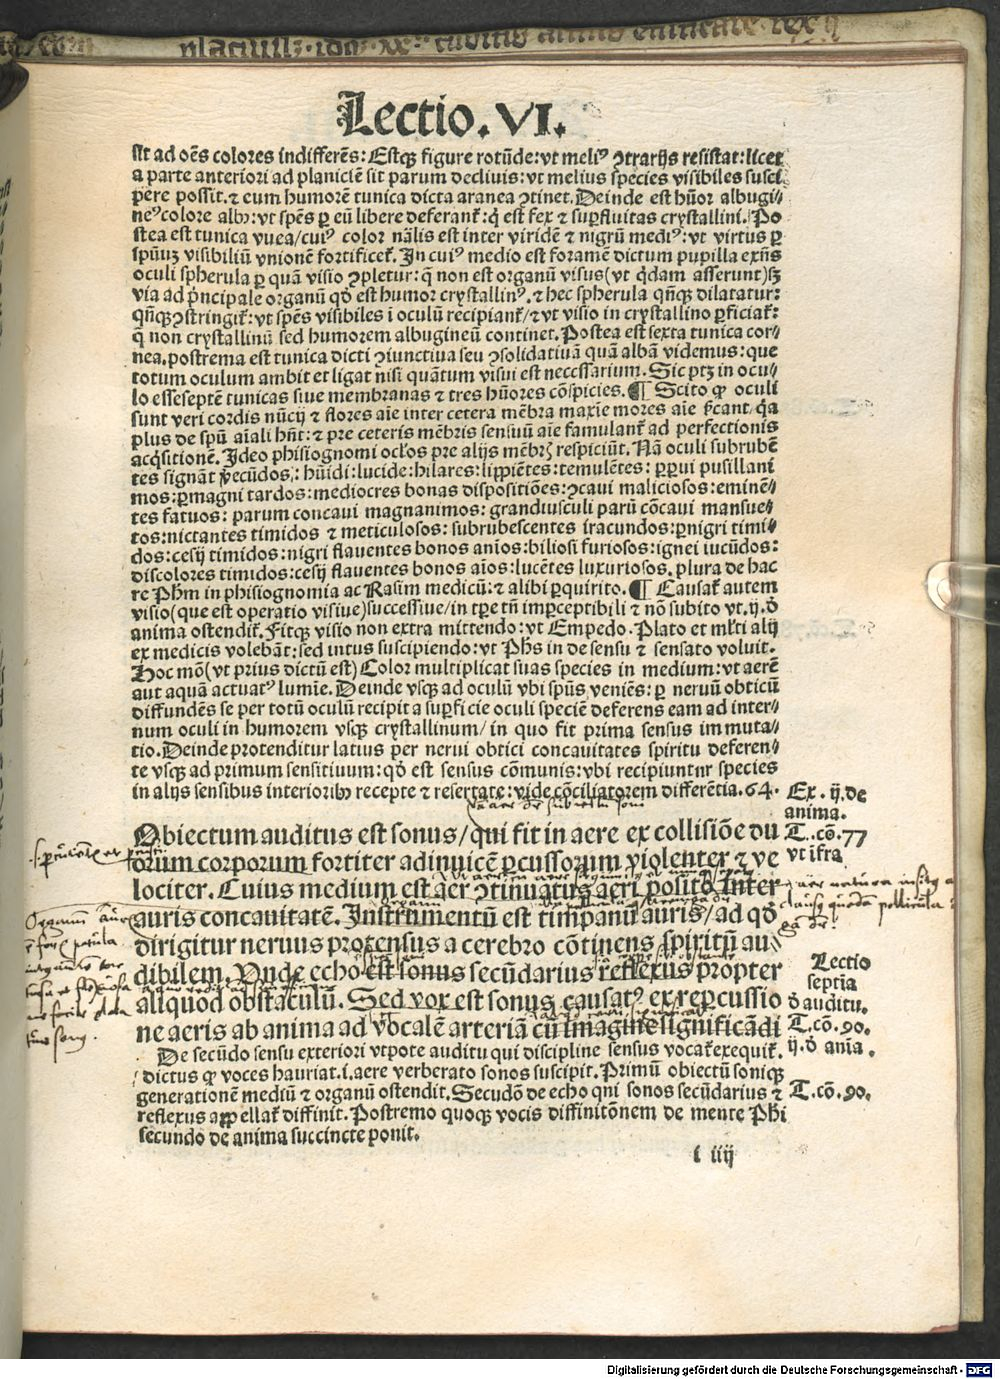 Lectio. VI.
sit ad oēs colores indifferēs: Estqꝫ figure rotūde: vt meliꝰ ꝯtrarijs resistat: licet
a parte anteriori ad planiciē sit parum decliuis: vt melius species visibiles susci
pere possit. ⁊ cum humorē tunica dicta aranea ꝯtinet. Deinde est hūor albugi⸗
neꝰ colore albꝰ: vt spēs ꝑ eū libere deferant᷑: q̇ est fex ⁊ suꝑfluitas crystallini. Po
stea est tunica vuea/ cuiꝰ color nālis est inter viridē ⁊ nigrū mediꝰ: vt virtus ꝑ
spūuꝫ visibiliū vnionē fortificet᷑. In cuiꝰ medio est foramē dictum pupilla exn̄s
oculi spherula ꝑ quā visio ꝯpletur: q̄ non est organū visus (vt q̇dam asserunt) sꝫ
via ad p̄ncipale organū qd̓ est humor crystallinꝰ. ⁊ hec spherula qn̄qꝫ dilatatur:
qn̄qꝫ ꝯstringit᷑: vt spēs visibiles i oculū recipiant᷑/ ⁊ vt visio in crystallino ꝑficiat᷑:
q̄ non crystallinū sed humorem albugineū continet. Postea est sexta tunica cor⸗
nea. postrema est tunica dicti ꝯiunctiua seu ꝯsolidatiuā quā albā videmus: que
totum oculum ambit et ligat nisi quātum visui est necessarium. Sic ptꝫ in ocu⸗
lo esse septē tunicas siue membranas ⁊ tres hūores cōspicies. ¶ Scito ꝙ oculi
sunt veri cordis nūcij ⁊ flores aīe inter cetera mēbra maxīe mores aīe p̄cant᷑ q̇a
plus de spū aīali hn̄t: ⁊ pre ceteris mēbris sensuū aīe famulant᷑ ad perfectionis
acq̇sitionē. Ideo phisiognomi oc̄los pre alijs mēbrꝭ respiciūt. Nā oculi subrubē
tes signāt v̓ecūdos: hūidi: lucide: hilares: lippiētes: temulētes: ꝑpui pusillani
mos: ꝑmagni tardos: mediocres bonas dispositiōes: ꝯcaui maliciosos: eminē⸗
tes fatuos: parum concaui magnanimos: grandiusculi parū cōcaui mansue⸗
tos: nictantes timidos ⁊ meticulosos: subrubescentes iracundos: ꝑnigri timi⸗
dos: cesij timidos: nigri flauentes bonos aīos: biliosi furiosos: ignei iucūdos:
discolores timidos: cesij flauentes bonos aīos: lucētes luxuriosos. plura de hac
re Phm̄ in phisiognomia ac Rasim medicū: ⁊ alibi ꝑquirito. ¶ Causat᷑ autem
visio (que est operatio visiue) successiue/ in tꝑe tn̄ imꝑceptibili ⁊ nō subito vt. ij. d̓
anima ostendit᷑. Fitqꝫ visio non extra mittendo: vt Empedo. Plato et ml̓ti alij
ex medicis volebāt: sed intus suscipiendo: vt Phs̄ in de sensu ⁊ sensato voluit.
Hoc mō (vt prius dictū est) Color multiplicat suas species in medium: vt aerē
aut aquā actuatꝰ lumīe. Deinde vsqꝫ ad oculū vbi spūs veniēs: ꝑ neruū obticū
diffundēs se per totū oculū recipit a suꝑficie oculi speciē deferens eam ad inter⸗
num oculi in humorem vsqꝫ crystallinum/ in quo fit prima sensus immuta⸗
tio. Deinde protenditur latius per nerui obtici concauitates spiritu deferen⸗
te vsqꝫ ad primum sensitiuum: qd̓ est sensus cōmunis: vbi recipiuntur species
in alijs sensibus interioribꝰ recepte ⁊ resertate: vide cōciliatorem differētia. 64.
Ex. ij. de
anima.
T. cō. 77
vt ifra
Obiectum auditus est sonus/ qui fit in aere ex collisiōe du
orum corporum fortiter adinuicē ꝑcussorum violenter ⁊ ve
lociter. Cuius medium est aer ꝯtinuatus aeri posito inter
auris concauitatē. Instrumentū est timpanū auris/ ad qd̓
dirigitur neruus protensus a cerebro cōtinens spiritū au⸗
dibilem. Vnde echo est sonus secūdarius reflexus propter
aliquod obstaculū. Sed vox est sonus causatꝰ ex reꝑcussio
ne aeris ab anima ad vocalē arteriā cū imagine significādi
Lectio
septia
d̓ auditu.
T. cō. 90.
ij. d̓ anīa.
T. cō. 90.
De secūdo sensu exteriori vtpote auditu qui discipline sensus vocat᷑ exequit᷑.
dictus ꝙ voces hauriat. i. aere verberato sonos suscipit. Primū obiectū soniqꝫ
generationē mediū ⁊ organū ostendit. Secundō de echo qui sonos secūdarius ⁊
reflexus appellat᷑ diffinit. Postremo quoqꝫ vocis diffinitōnem de mente Phi
secundo de anima succincte ponit.
l iiij
Digitalisierung gefördert durch die Deutsche Forschungsgemeinschaft - DFG